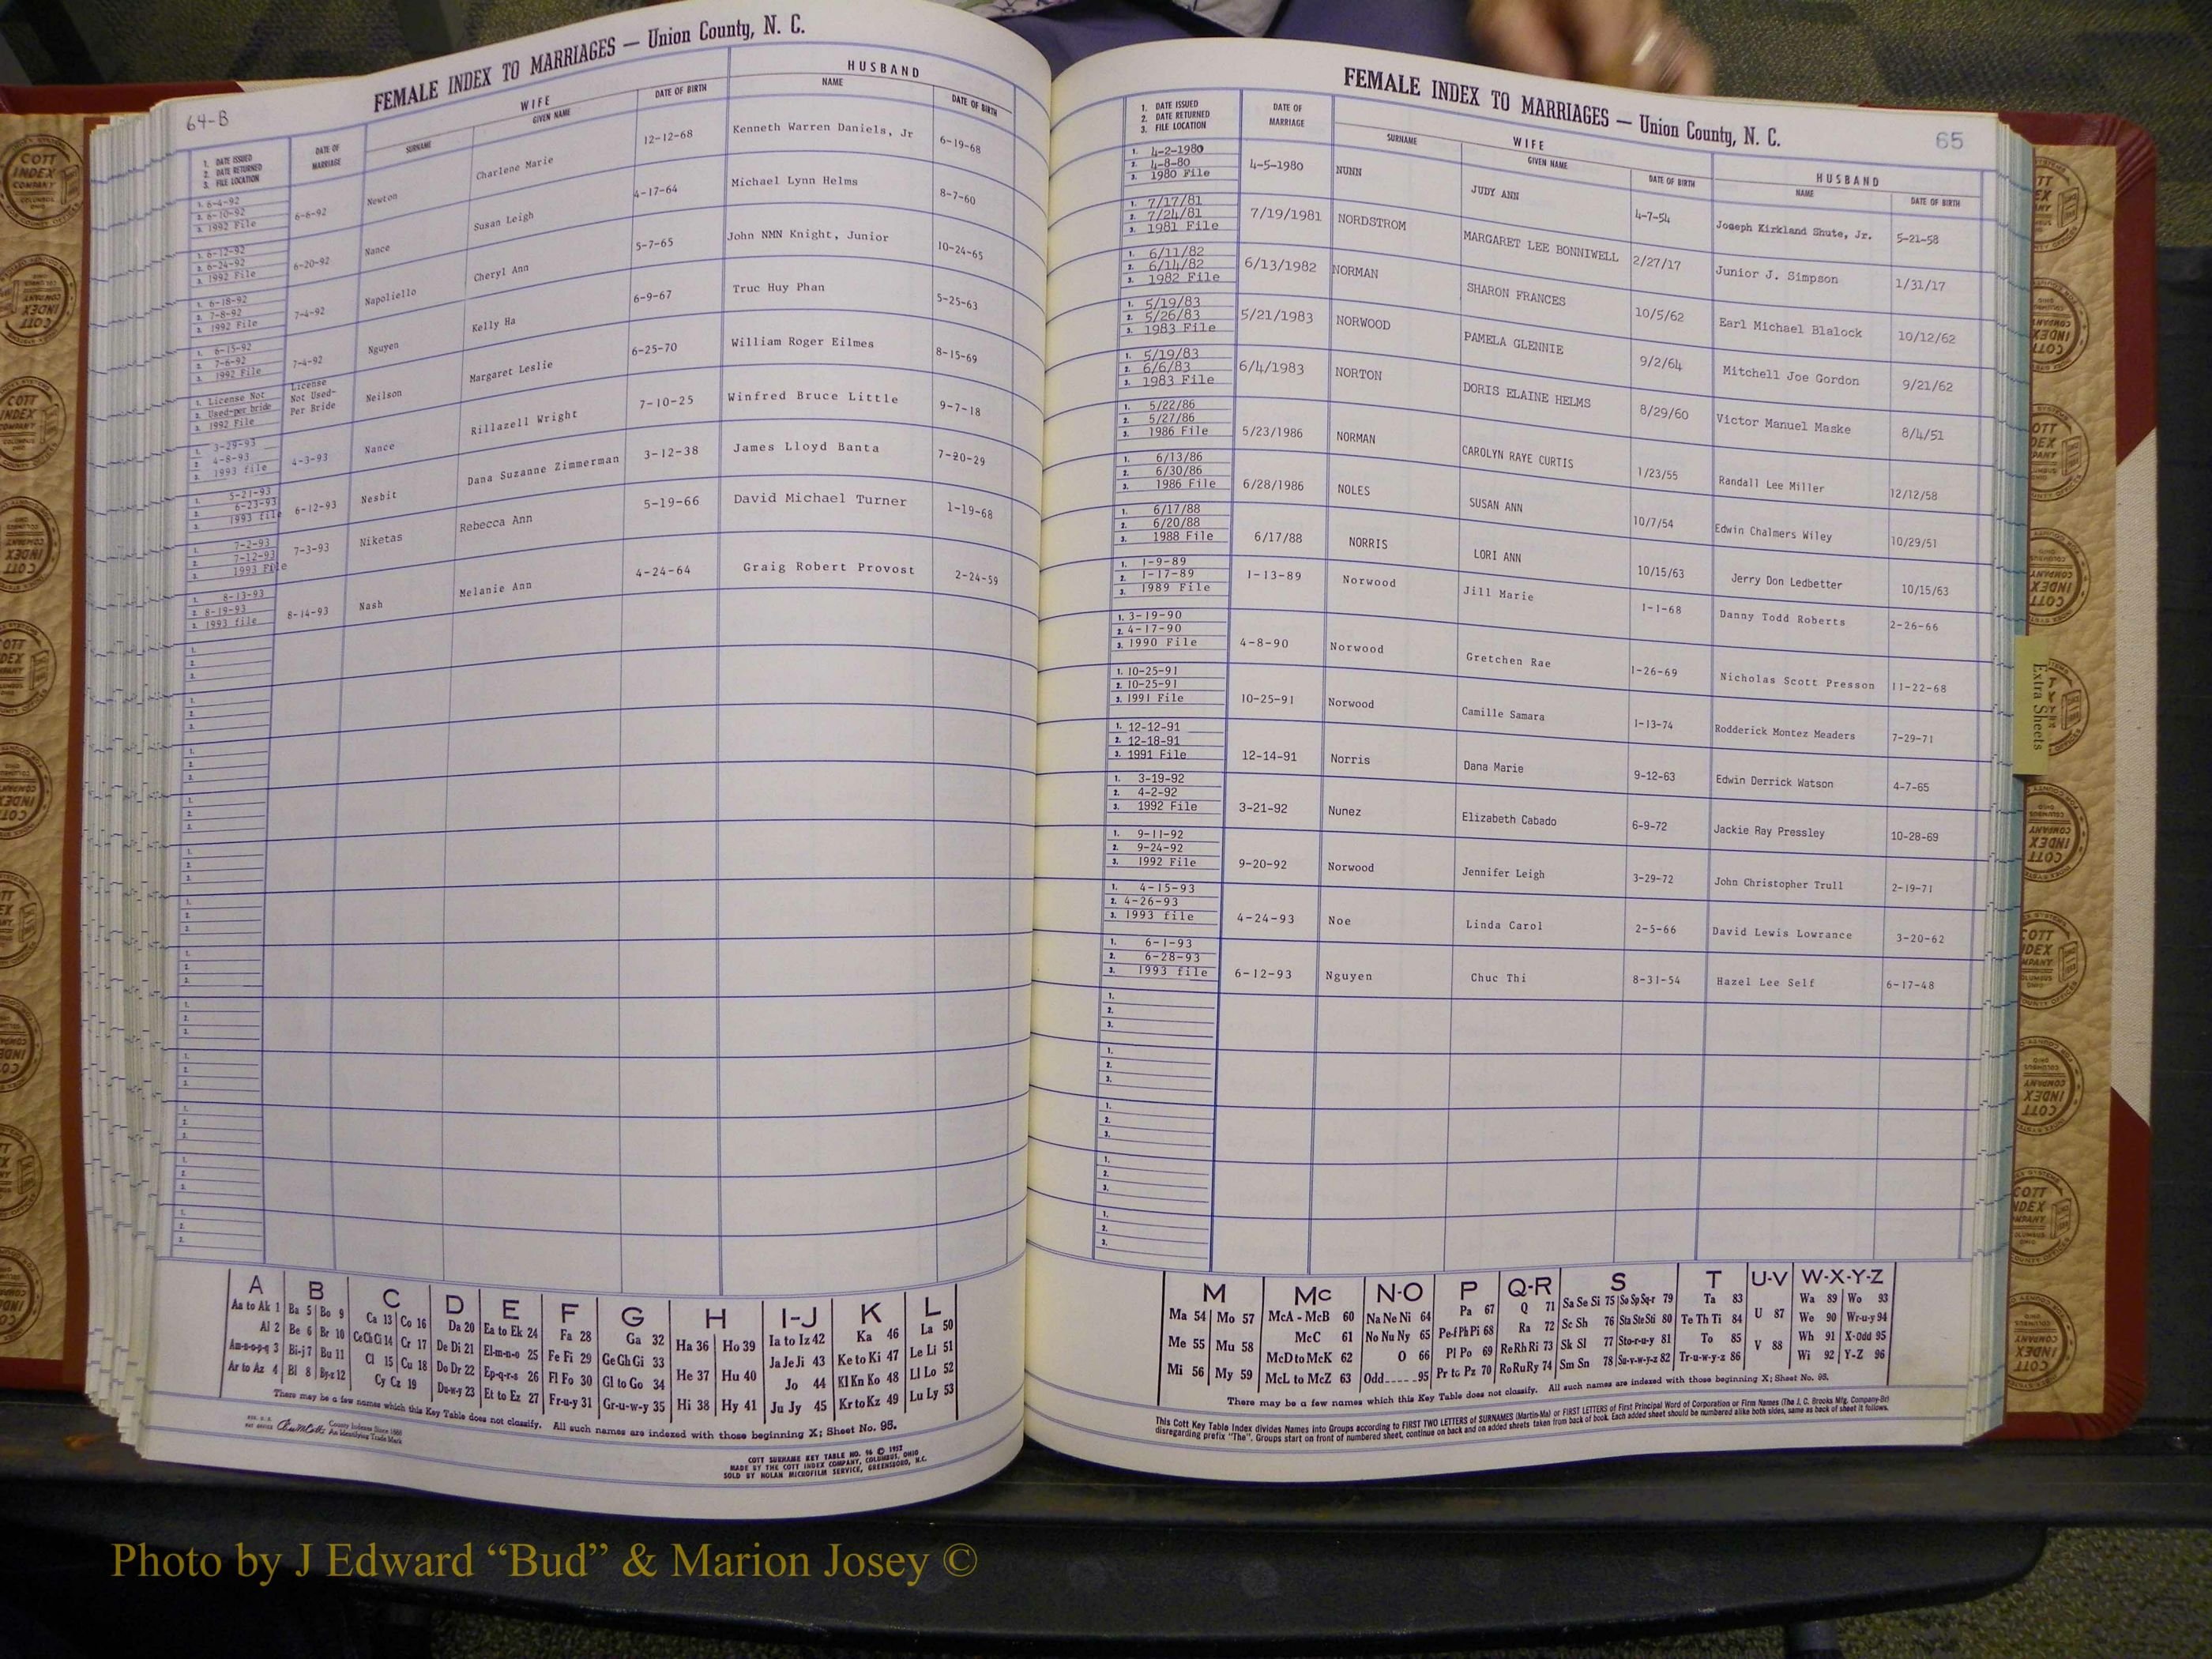 64-B
FEMALE INDEX TO MARRIAGES — Union County, N. C.
1. DATE ISSUED
2. DATE RETURNED
3. FILE LOCATION
DATE OF MARRIAGE
WIFE
SURNAME GIVEN NAME DATE OF BIRTH
HUSBAND
NAME DATE OF BIRTH
1. 6-4-92
2. 6-10-92
3. 1992 File
6-6-92 Newton Charlene Marie 12-12-68 Kenneth Warren Daniels, Jr 6-19-68
1. 6-12-92
2. 6-24-92
3. 1992 File
6-20-92 Nance Susan Leigh 4-17-64 Michael Lynn Helms 8-7-60
1. 6-18-92
2. 7-8-92
3. 1992 File
7-4-92 Napoliello Cheryl Ann 5-7-65 John NMN Knight, Junior 10-24-65
1. 6-15-92
2. 7-6-92
3. 1992 File
7-4-92 Nguyen Kelly Ha 6-9-67 Truc Huy Phan 5-25-63
1. License Not
2. Used-per bride
3. 1992 File
License Not Used- Per Bride Neilson Margaret Leslie 6-25-70 William Roger Eilmes 8-15-69
1. 3-29-93
2. 4-8-93
3. 1993 file
4-3-93 Nance Rillazell Wright 7-10-25 Winfred Bruce Little 9-7-18
1. 5-21-93
2. 6-23-93
3. 1993 file
6-12-93 Nesbit Dana Suzanne Zimmerman 3-12-38 James Lloyd Banta 7-20-29
1. 7-2-93
2. 7-12-93
3. 1993 File
7-3-93 Niketas Rebecca Ann 5-19-66 David Michael Turner 1-19-68
1. 8-13-93
2. 8-19-93
3. 1993 file
8-14-93 Nash Melanie Ann 4-24-64 Graig Robert Provost 2-24-59
A B C D E F G H I-J K L
Aa to Ak 1 Ba 5 Bo 9 Ca 13 Co 16 Da 20 Ea to Ek 24 Fa 28 Ga 32 Ha 36 Ho 39 Ia to Iz 42 Ka 46 La 50
Al 2 Be 6 Br 10 Ce Ch Ci 14 Cr 17 De Di 21 El-m-n-o 25 Fe Fi 29 Ge Gh Gi 33 He 37 Hu 40 Ja Je Ji 43 Ke to Ki 47 Le Li 51
Am-n-o-p-q 3 Bi-j 7 Bu 11 Cl 15 Cu 18 Do Dr 22 Ep-q-r-s 26 Fl Fo 30 Gl to Go 34 Hi 38 Hy 41 Jo 44 Kl Kn Ko 48 Ll Lo 52
Ar to Az 4 Bl 8 By-z 12 Cy Cz 19 Du-w-y 23 Et to Ez 27 Fr-u-y 31 Gr-u-w-y 35 Ju Jy 45 Kr to Kz 49 Lu Ly 53
There may be a few names which this Key Table does not classify. All such names are indexed with those beginning X; Sheet No. 95.
County Indexes Since 1888
An Identifying Trade Mark
COTT SURNAME KEY TABLE NO. 96 © 1952
MADE BY THE COTT INDEX COMPANY, COLUMBUS, OHIO
SOLD BY NOLAN MICROFILM SERVICE, GREENSBORO, N.C.
FEMALE INDEX TO MARRIAGES — Union County, N. C.
65
1. DATE ISSUED
2. DATE RETURNED
3. FILE LOCATION
DATE OF MARRIAGE
WIFE
SURNAME GIVEN NAME DATE OF BIRTH
HUSBAND
NAME DATE OF BIRTH
1. 4-2-1980
2. 4-8-80
3. 1980 File
4-5-1980 NUNN JUDY ANN 4-7-54 Joseph Kirkland Shute, Jr. 5-21-58
1. 7/17/81
2. 7/24/81
3. 1981 File
7/19/1981 NORDSTROM MARGARET LEE BONNIWELL 2/27/17 Junior J. Simpson 1/31/17
1. 6/11/82
2. 6/14/82
3. 1982 File
6/13/1982 NORMAN SHARON FRANCES 10/5/62 Earl Michael Blalock 10/12/62
1. 5/19/83
2. 5/26/83
3. 1983 File
5/21/1983 NORWOOD PAMELA GLENNIE 9/2/64 Mitchell Joe Gordon 9/21/62
1. 5/19/83
2. 6/6/83
3. 1983 File
6/4/1983 NORTON DORIS ELAINE HELMS 8/29/60 Victor Manuel Maske 8/4/51
1. 5/22/86
2. 5/27/86
3. 1986 File
5/23/1986 NORMAN CAROLYN RAYE CURTIS 1/23/55 Randall Lee Miller 12/12/58
1. 6/13/86
2. 6/30/86
3. 1986 File
6/28/1986 NOLES SUSAN ANN 10/7/54 Edwin Chalmers Wiley 10/29/51
1. 6/17/88
2. 6/20/88
3. 1988 File
6/17/88 NORRIS LORI ANN 10/15/63 Jerry Don Ledbetter 10/15/63
1. 1-9-89
2. 1-17-89
3. 1989 File
1-13-89 Norwood Jill Marie 1-1-68 Danny Todd Roberts 2-26-66
1. 3-19-90
2. 4-17-90
3. 1990 File
4-8-90 Norwood Gretchen Rae 1-26-69 Nicholas Scott Presson 11-22-68
1. 10-25-91
2. 10-25-91
3. 1991 File
10-25-91 Norwood Camille Samara 1-13-74 Rodderick Montez Meaders 7-29-71
1. 12-12-91
2. 12-18-91
3. 1991 File
12-14-91 Norris Dana Marie 9-12-63 Edwin Derrick Watson 4-7-65
1. 3-19-92
2. 4-2-92
3. 1992 File
3-21-92 Nunez Elizabeth Cabado 6-9-72 Jackie Ray Pressley 10-28-69
1. 9-11-92
2. 9-24-92
3. 1992 File
9-20-92 Norwood Jennifer Leigh 3-29-72 John Christopher Trull 2-19-71
1. 4-15-93
2. 4-26-93
3. 1993 file
4-24-93 Noe Linda Carol 2-5-66 David Lewis Lowrance 3-20-62
1. 6-1-93
2. 6-28-93
3. 1993 file
6-12-93 Nguyen Chuc Thi 8-31-54 Hazel Lee Self 6-17-48
M Mc N-O P Q-R S T U-V W-X-Y-Z
Ma 54 Mo 57 McA - McB 60 Na Ne Ni 64 Pa 67 Q 71 Sa Se Si 75 So Sp Sq-r 79 Ta 83 U 87 Wa 89 Wo 93
Me 55 Mu 58 McC 61 No Nu Ny 65 Pe-f Ph Pi 68 Ra 72 Sc Sh 76 Sta Ste Sti 80 Te Th Ti 84 V 88 We 90 Wr-u-y 94
Mi 56 My 59 McD to McK 62 O 66 Pl Po 69 Re Rh Ri 73 Sk Sl 77 Sto-r-u-y 81 To 85 Wh 91 X-Odd 95
McL to McZ 63 Odd 95 Pr to Pz 70 Ro Ru Ry 74 Sm Sn 78 Su-v-w-y-z 82 Tr-u-w-y-z 86 Wi 92 Y-Z 96
There may be a few names which this Key Table does not classify. All such names are indexed with those beginning X; Sheet No. 95.
This Cott Key Table Index divides Names into Groups according to FIRST TWO LETTERS of SURNAMES (Martin-Ma) or FIRST LETTERS of First Principal Word of Corporation or Firm Names (The J. C. Brooks Mfg. Company-Br)
disregarding prefix "The". Groups start on front of numbered sheet, continue on back and on added sheets taken from back of book. Each added sheet should be numbered alike both sides, same as back of sheet it follows.
Extra Sheets
COTT INDEX COMPANY
Photo by J Edward “Bud” & Marion Josey ©